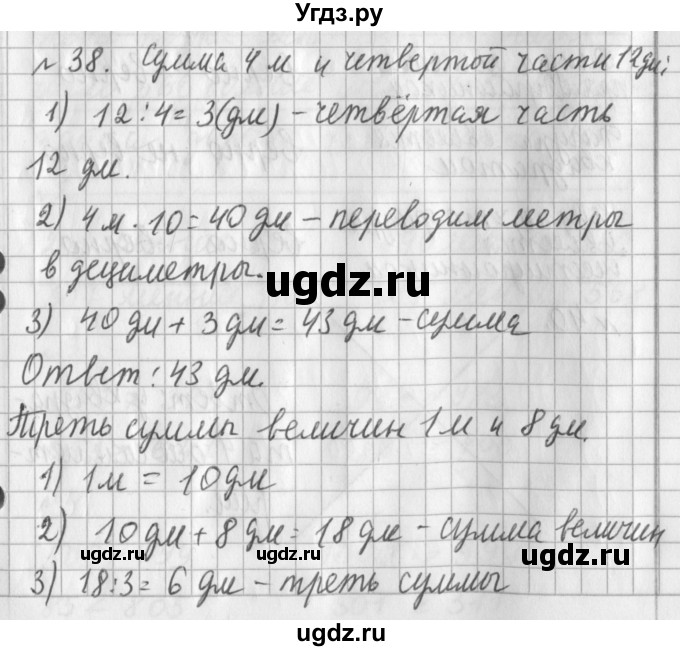 Угдз.ру
№ 38. Сумма 4 м и четвертой части 12дм:
1) 12:4=3(дм) – четвёртая часть
12 дм.
2) 4м·10=40дм – переводим метры
в дециметры.
ugdz.ru
3) 40дм + 3дм = 43дм – сумма
Ответ: 43 дм.
ugdz.ru
Треть суммы величин 1м и 8дм.
1) 1м = 10дм
2) 10дм + 8дм = 18дм – сумма величин
ugdz.ru ugdz.ru ugdz.ru
3) 18:3= 6 дм – треть суммы
ugdz.ru